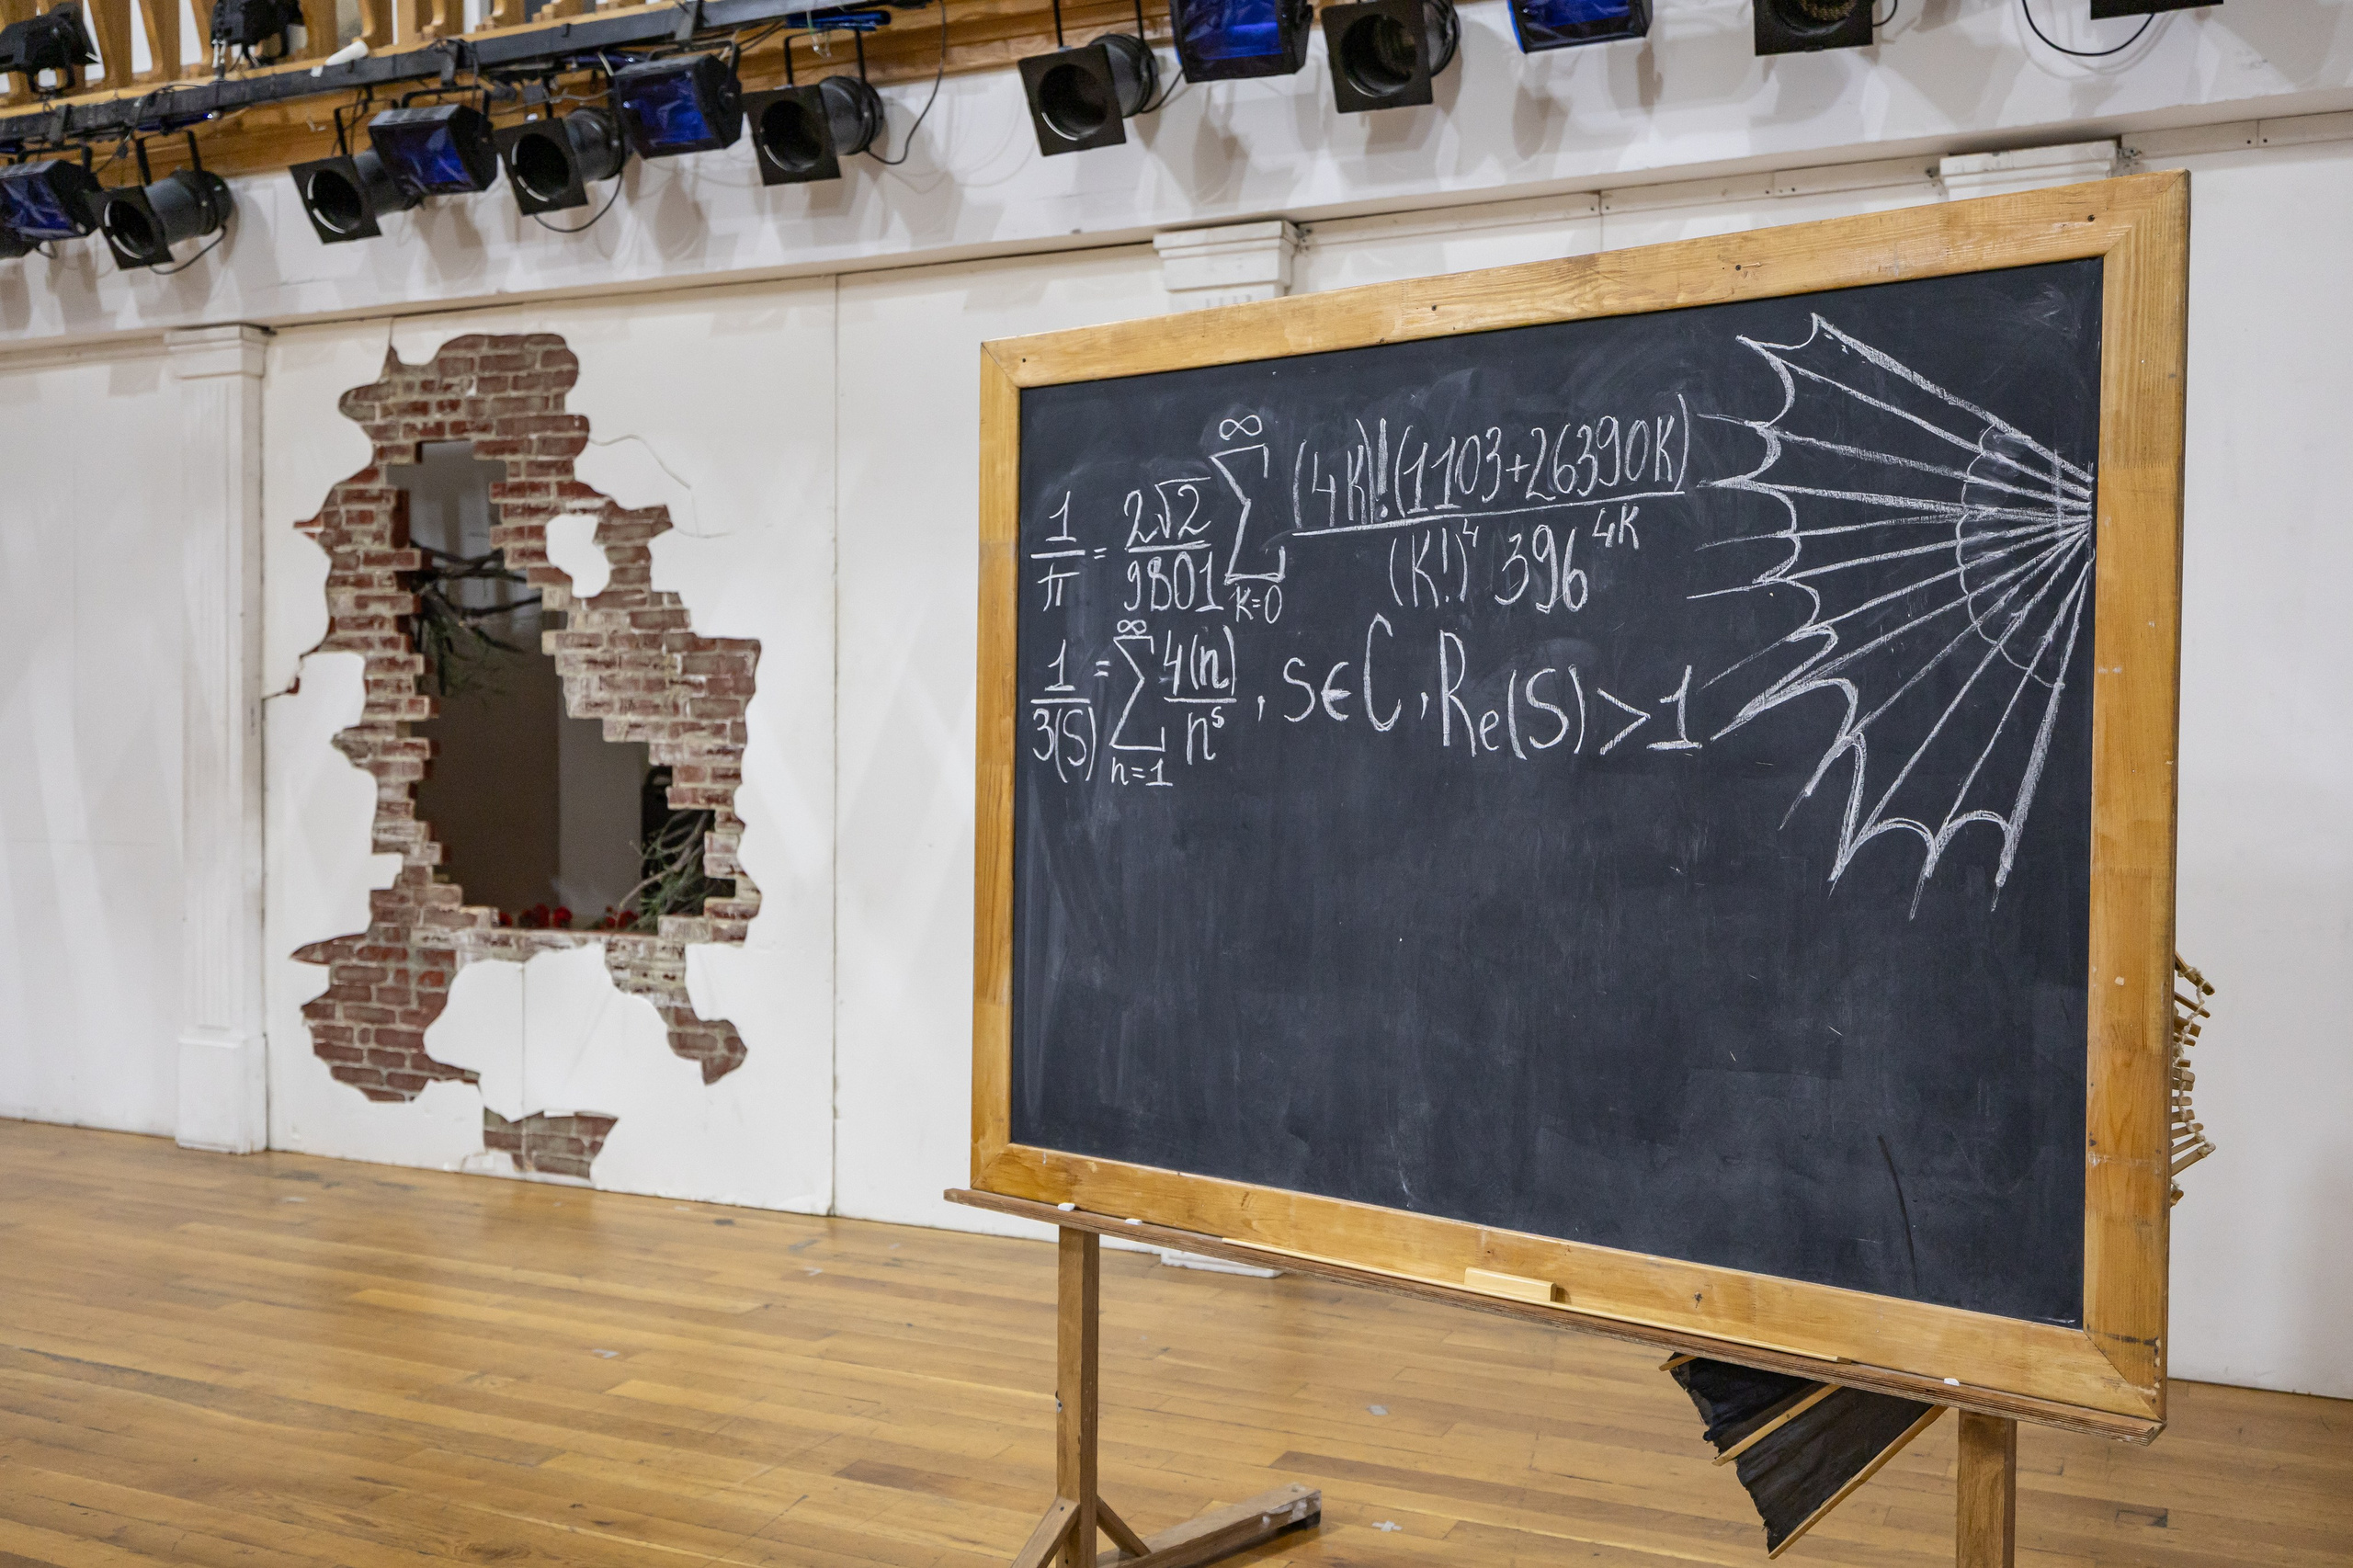 1/π = 2√2/9801 ∑_{K=0}^{∞} (4K)!(1103+26390K)/(K!)⁴ 396^{4K}
1/3(S) = ∑_{n=1}^{∞} 4(n)/n^s, S∈C, Re(S)>1